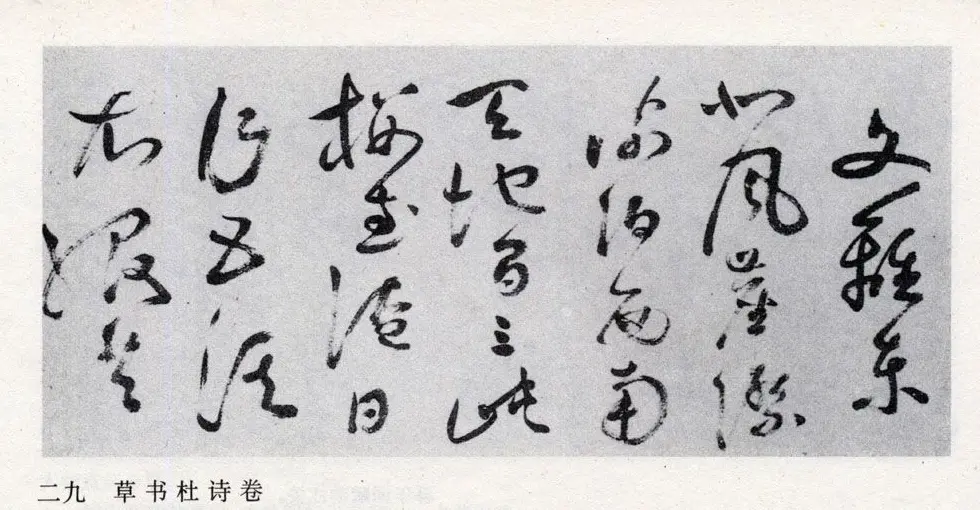 支離東
北風塵際
漂泊西南
天地間三峽
樓臺淹日
月五溪
衣服共
二九 草书杜诗卷